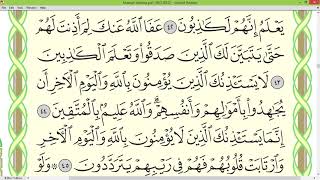 يَعْلَمُ إِنَّهُمْ لَكَٰذِبُونَ ٤٢ عَفَا ٱللَّهُ عَنكَ لِمَ أَذِنتَ لَهُمْ
حَتَّىٰ يَتَبَيَّنَ لَكَ ٱلَّذِينَ صَدَقُوا۟ وَتَعْلَمَ ٱلْكَٰذِبِينَ ٤٣
لَا يَسْتَـْٔذِنُكَ ٱلَّذِينَ يُؤْمِنُونَ بِٱللَّهِ وَٱلْيَوْمِ ٱلْءَاخِرِ أَن
يُجَٰهِدُوا۟ بِأَمْوَٰلِهِمْ وَأَنفُسِهِمْ ۗ وَٱللَّهُ عَلِيمٌۢ بِٱلْمُتَّقِينَ ٤٤
إِنَّمَا يَسْتَـْٔذِنُكَ ٱلَّذِينَ لَا يُؤْمِنُونَ بِٱللَّهِ وَٱلْيَوْمِ ٱلْءَاخِرِ
وَٱرْتَابَتْ قُلُوبُهُمْ فَهُمْ فِى رَيْبِهِمْ يَتَرَدَّدُونَ ٤٥ ۞ وَلَوْ